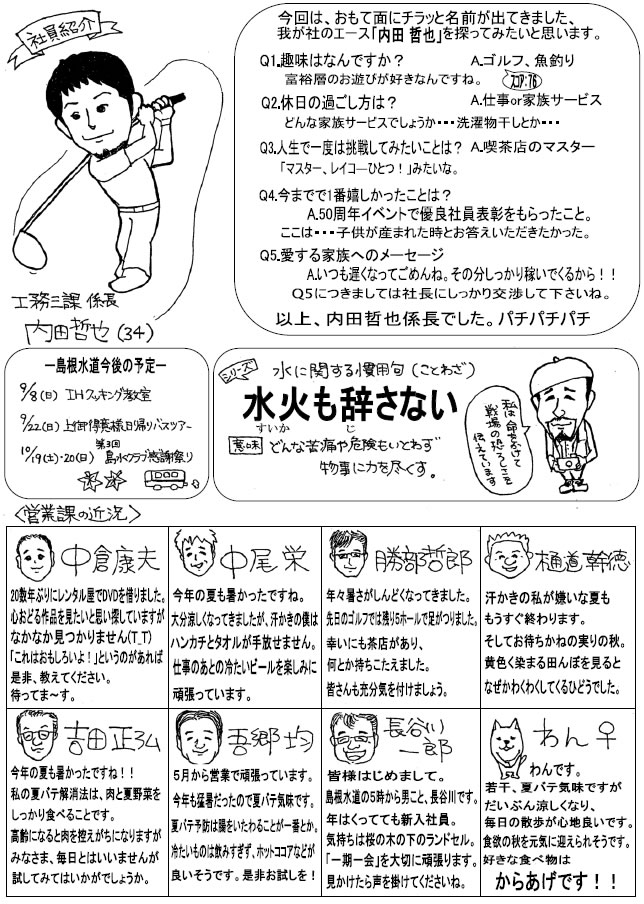 社員紹介
今回は、おもて面にチラッと名前が出てきました、
我が社のエース「内田 哲也」を探ってみたいと思います。
Q1.趣味はなんですか？ A.ゴルフ、魚釣り
富裕層のお遊びが好きなんですね。 スコア:76
Q2.休日の過ごし方は？ A.仕事or家族サービス
どんな家族サービスでしょうか・・・洗濯物干しとか・・・
Q3.人生で一度は挑戦してみたいことは？ A.喫茶店のマスター
「マスター、レイコーひとつ！」みたいな。
Q4.今までで1番嬉しかったことは？
A.50周年イベントで優良社員表彰をもらったこと。
ここは・・・子供が産まれた時とお答えいただきたかった。
Q5.愛する家族へのメーセージ
A.いつも遅くなってごめんね。その分しっかり稼いでくるから！！
Q5につきましては社長にしっかり交渉して下さいね。
以上、内田哲也係長でした。パチパチパチ
工務三課 係長
内田哲也(34)
ー島根水道今後の予定ー
9/8(日) IHクッキング教室
9/22(日) 上得意様日帰りバスツアー
10/19(土)・20(日) 第3回 島水クラブ感謝祭り
シリーズ 水に関する慣用句(ことわざ)
水火も辞さない
すいか じ
意味 どんな苦痛や危険もいとわず
物事に力を尽くす。
私は命をかけて
戦場の恐ろしさを
伝えています
〈営業課の近況〉
中倉康夫
20数年ぶりにレンタル屋でDVDを借りました。
心おどる作品を見たいと思い探していますが
なかなか見つかりません(T_T)
「これはおもしろいよ！」というのがあれば
是非、教えてください。
待ってま～す。
中尾栄
今年の夏も暑かったですね。
大分涼しくなってきましたが、汗かきの僕は
ハンカチとタオルが手放せません。
仕事のあとの冷たいビールを楽しみに
頑張っています。
勝部哲郎
年々暑さがしんどくなってきました。
先日のゴルフでは残り5ホールで足がつりました。
幸いにも茶店があり、
何とか持ちこたえました。
皆さんも充分気を付けましょう。
樋道幹徳
汗かきの私が嫌いな夏も
もうすぐ終わります。
そしてお待ちかねの実りの秋。
黄色く染まる田んぼを見ると
なぜかわくわくしてくるひどうでした。
吉田正弘
今年の夏も暑かったですね！！
私の夏バテ解消法は、肉と夏野菜を
しっかり食べることです。
高齢になると肉を控えがちになりますが
みなさま、毎日とはいいませんが
試してみてはいかがでしょうか。
吾郷均
5月から営業で頑張っています。
今年も猛暑だったので夏バテ気味です。
夏バテ予防は腸をいたわることが一番とか。
冷たいものは飲みすぎず、ホットココアなどが
良いそうです。是非お試しを！
長谷川一郎
皆様はじめまして。
島根水道の5時から男こと、長谷川です。
年はくってても新入社員。
気持ちは桜の木の下のランドセル。
「一期一会」を大切に頑張ります。
見かけたら声を掛けてくださいね。
わん♀
わんです。
若干、夏バテ気味ですが
だいぶん涼しくなり、
毎日の散歩が心地良いです。
食欲の秋を元気に迎えられそうです。
好きな食べ物は
からあげです！！